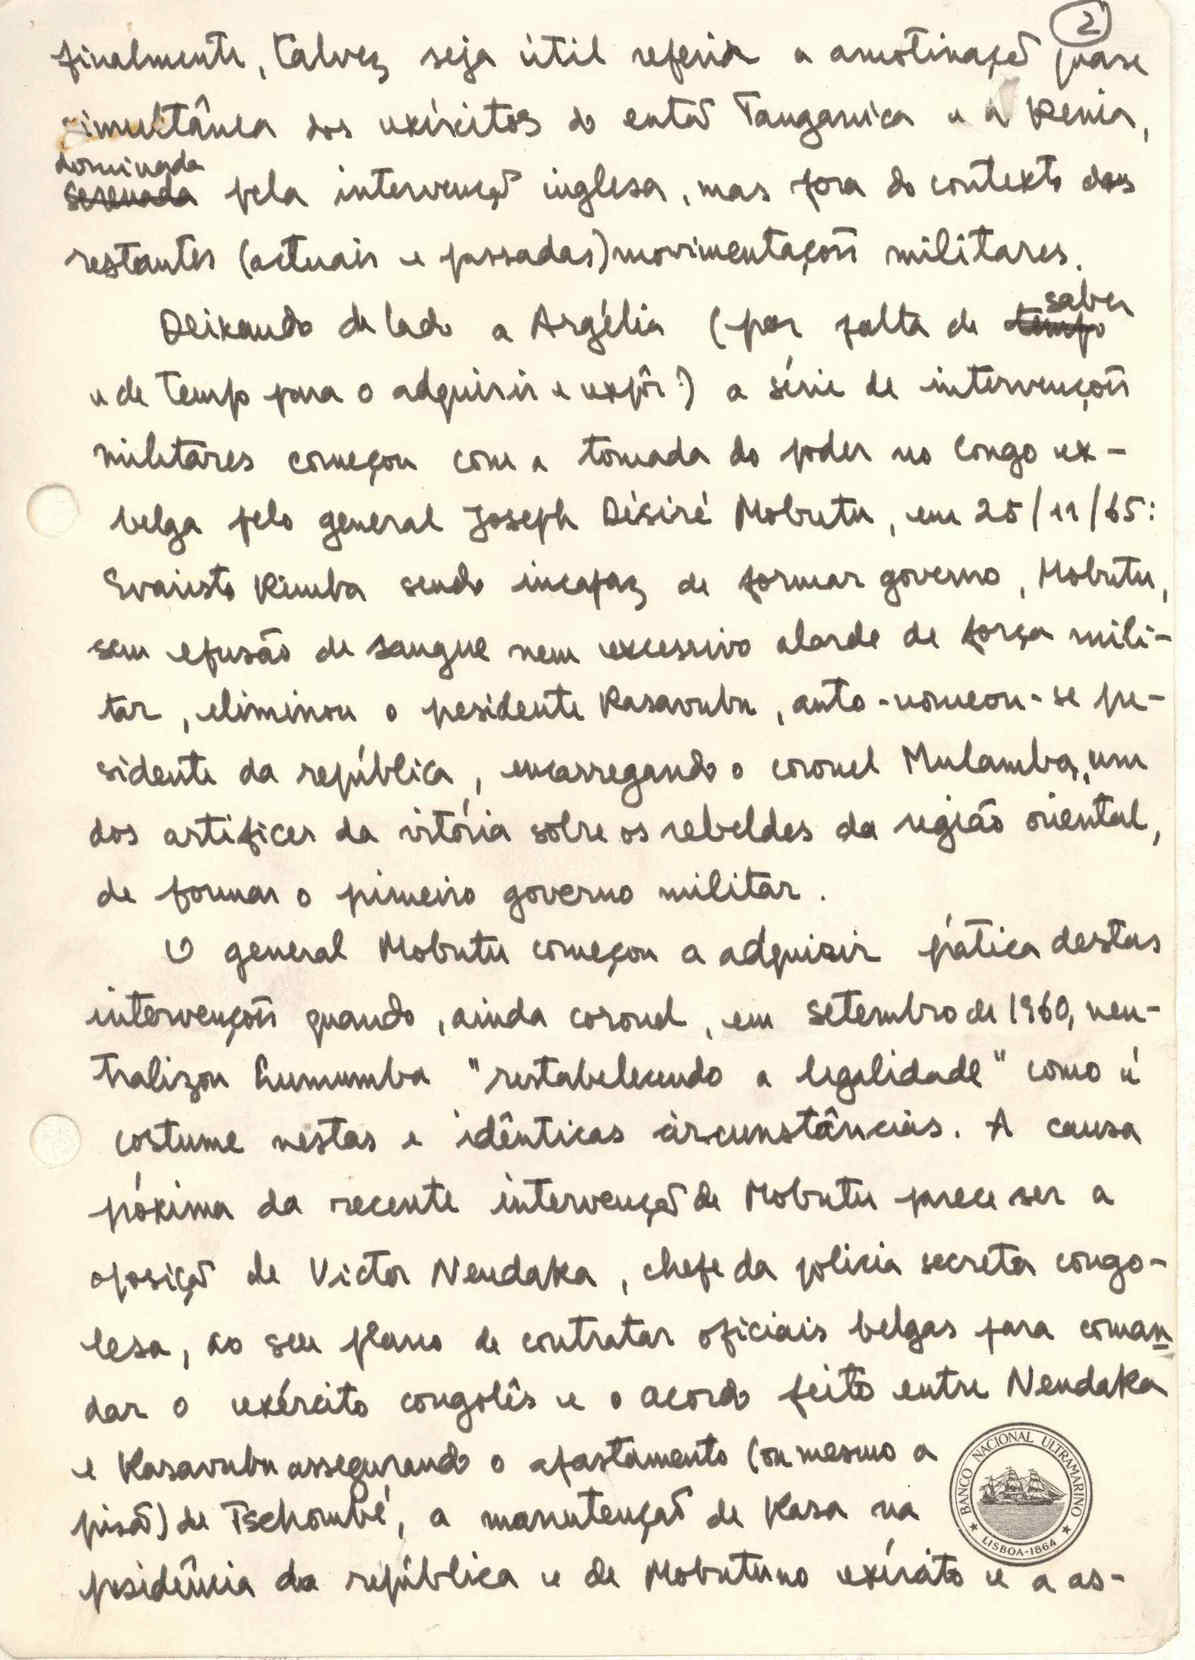 2
finalmente, talvez seja útil referir a amotinação quase
simultânea dos exércitos do então Tanganica e a Kenia,
dominada
serenada pela intervenção inglesa, mas fora do contexto das
restantes (actuais e passadas) movimentações militares.
saber
Deixando de lado a Argélia (por falta de tempo
e de tempo para o adquirir e expôr!) a série de intervenções
militares começou com a tomada do poder no Congo ex-
belga pelo general Joseph Désiré Mobutu, em 25/11/65:
Evaristo Kimba sendo incapaz de formar governo, Mobutu,
sem efusão de sangue nem excessivo alarde de força mili-
tar, eliminou o presidente Kasavubu, auto-nomeou-se pre-
sidente da república, encarregando o coronel Mulamba, um
dos artífices da vitória sobre os rebeldes da região oriental,
de formar o primeiro governo militar.
O general Mobutu começou a adquirir prática destas
intervenções quando, ainda coronel, em setembro de 1960, neu-
tralizou Lumumba "restabelecendo a legalidade" como é
costume nestas e idênticas circunstâncias. A causa
próxima da recente intervenção de Mobutu parece ser a
oposição de Victor Nendaka, chefe da polícia secreta congo-
lesa, ao seu plano de contratar oficiais belgas para coman
dar o exército congolês e o acordo feito entre Nendaka
e Kasavubu assegurando o afastamento (ou mesmo a
prisão) de Tschombé, a manutenção de Kasa na
presidência da república e de Mobutu no exército e a as-
BANCO NACIONAL ULTRAMARINO
LISBOA-1864